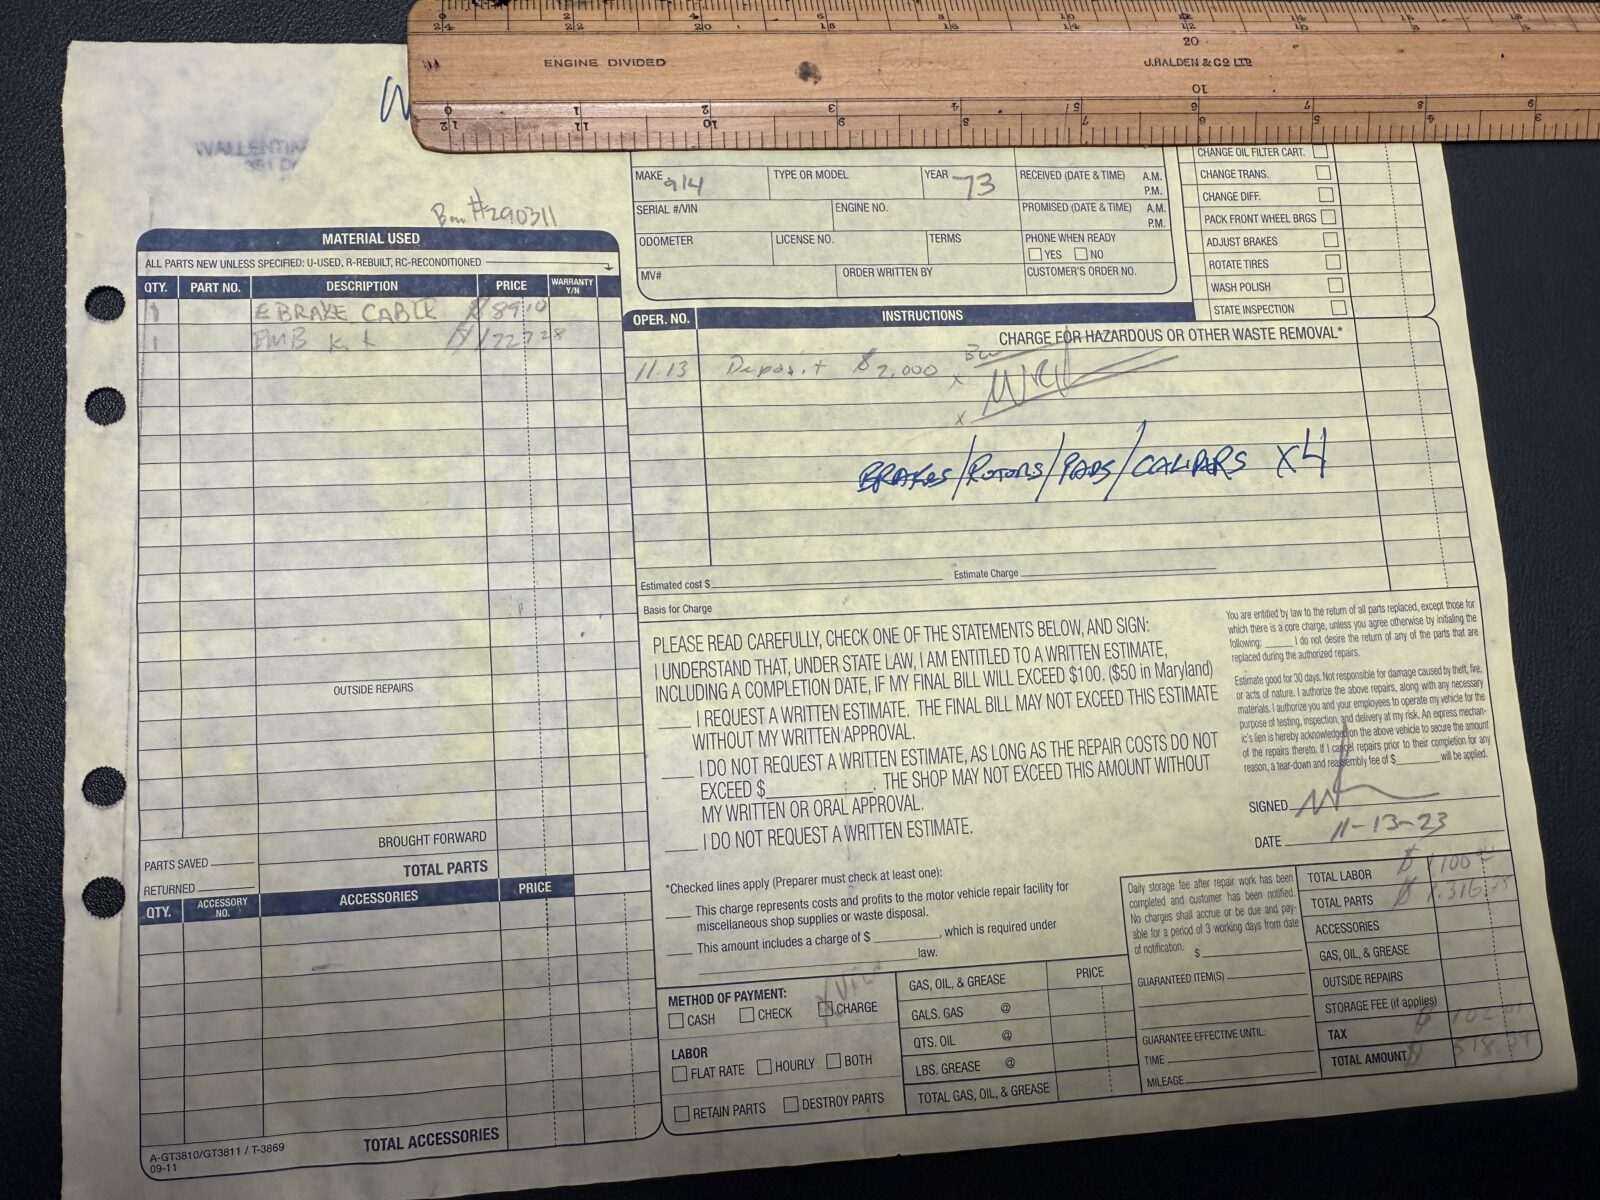 ENGINE DIVIDED
J.HALDEN & CO LTD
WALLENTIN
#290311
MATERIAL USED
ALL PARTS NEW UNLESS SPECIFIED: U-USED, R-REBUILT, RC-RECONDITIONED
QTY. PART NO. DESCRIPTION PRICE WARRANTY Y/N
1 E BRAKE CABLE $ 89.10
1 PMB
OUTSIDE REPAIRS
BROUGHT FORWARD
PARTS SAVED
TOTAL PARTS
RETURNED
QTY. ACCESSORY NO. ACCESSORIES PRICE
TOTAL ACCESSORIES
A-GT3810/GT3811 / T-3869
09-11
MAKE 914 TYPE OR MODEL YEAR 73 RECEIVED (DATE & TIME) A.M. P.M.
SERIAL #/VIN ENGINE NO. PROMISED (DATE & TIME) A.M. P.M.
ODOMETER LICENSE NO. TERMS PHONE WHEN READY
YES NO
MV# ORDER WRITTEN BY CUSTOMER'S ORDER NO.
CHANGE OIL FILTER CART.
CHANGE TRANS.
CHANGE DIFF.
PACK FRONT WHEEL BRGS
ADJUST BRAKES
ROTATE TIRES
WASH POLISH
STATE INSPECTION
OPER. NO. INSTRUCTIONS
CHARGE FOR HAZARDOUS OR OTHER WASTE REMOVAL*
11.13 Deposit $2,000 x
x
BRAKES/ROTORS/PADS/CALIPARS x4
Estimated cost $ Estimate Charge
Basis for Charge
PLEASE READ CAREFULLY, CHECK ONE OF THE STATEMENTS BELOW, AND SIGN:
I UNDERSTAND THAT, UNDER STATE LAW, I AM ENTITLED TO A WRITTEN ESTIMATE,
INCLUDING A COMPLETION DATE, IF MY FINAL BILL WILL EXCEED $100. ($50 in Maryland)
I REQUEST A WRITTEN ESTIMATE. THE FINAL BILL MAY NOT EXCEED THIS ESTIMATE
WITHOUT MY WRITTEN APPROVAL.
I DO NOT REQUEST A WRITTEN ESTIMATE, AS LONG AS THE REPAIR COSTS DO NOT
EXCEED $ . THE SHOP MAY NOT EXCEED THIS AMOUNT WITHOUT
MY WRITTEN OR ORAL APPROVAL.
I DO NOT REQUEST A WRITTEN ESTIMATE.
You are entitled by law to the return of all parts replaced, except those for
which there is a core charge, unless you agree otherwise by initialing the
following: I do not desire the return of any of the parts that are
replaced during the authorized repairs.
Estimate good for 30 days. Not responsible for damage caused by theft, fire,
or acts of nature. I authorize the above repairs, along with any necessary
materials. I authorize you and your employees to operate my vehicle for the
purpose of testing, inspection, and delivery at my risk. An express mechan-
ic's lien is hereby acknowledged on the above vehicle to secure the amount
of the repairs thereto. If I cancel repairs prior to their completion for any
reason, a tear-down and reassembly fee of $ will be applied.
SIGNED
DATE 11-13-23
*Checked lines apply (Preparer must check at least one):
This charge represents costs and profits to the motor vehicle repair facility for
miscellaneous shop supplies or waste disposal.
This amount includes a charge of $ , which is required under
law.
METHOD OF PAYMENT:
CASH CHECK CHARGE
LABOR
FLAT RATE HOURLY BOTH
RETAIN PARTS DESTROY PARTS
GAS, OIL, & GREASE PRICE
GALS. GAS @
QTS. OIL @
LBS. GREASE @
TOTAL GAS, OIL, & GREASE
Daily storage fee after repair work has been
completed and customer has been notified.
No charges shall accrue or be due and pay-
able for a period of 3 working days from date
of notification. $
GUARANTEED ITEM(S)
GUARANTEE EFFECTIVE UNTIL:
TIME
MILEAGE
TOTAL LABOR $
TOTAL PARTS $
ACCESSORIES
GAS, OIL, & GREASE
OUTSIDE REPAIRS
STORAGE FEE (if applies)
TAX $
TOTAL AMOUNT $